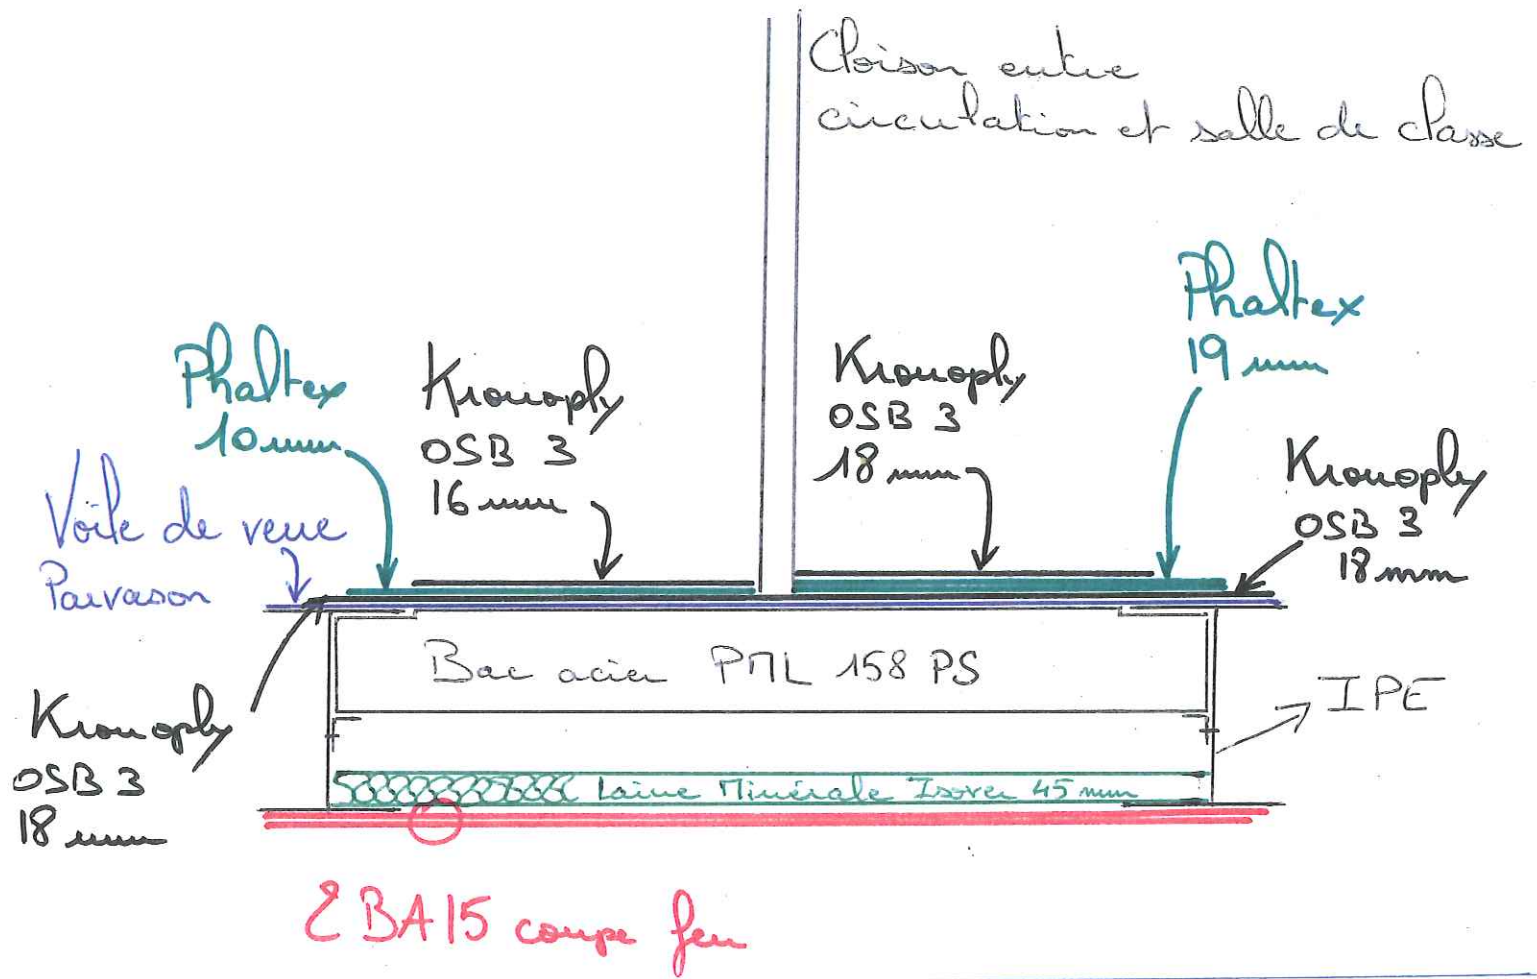 Cloison entre
circulation et salle de classe
Phaltex
19 mm
Phaltex
10 mm
Kronoply
OSB 3
16 mm
Kronoply
OSB 3
18 mm
Kronoply
OSB 3
18 mm
Voile de verre
Parvason
Bac acier PML 158 PS
IPE
Kronoply
OSB 3
18 mm
Laine Minérale Isover 45 mm
2 BA15 coupe feu